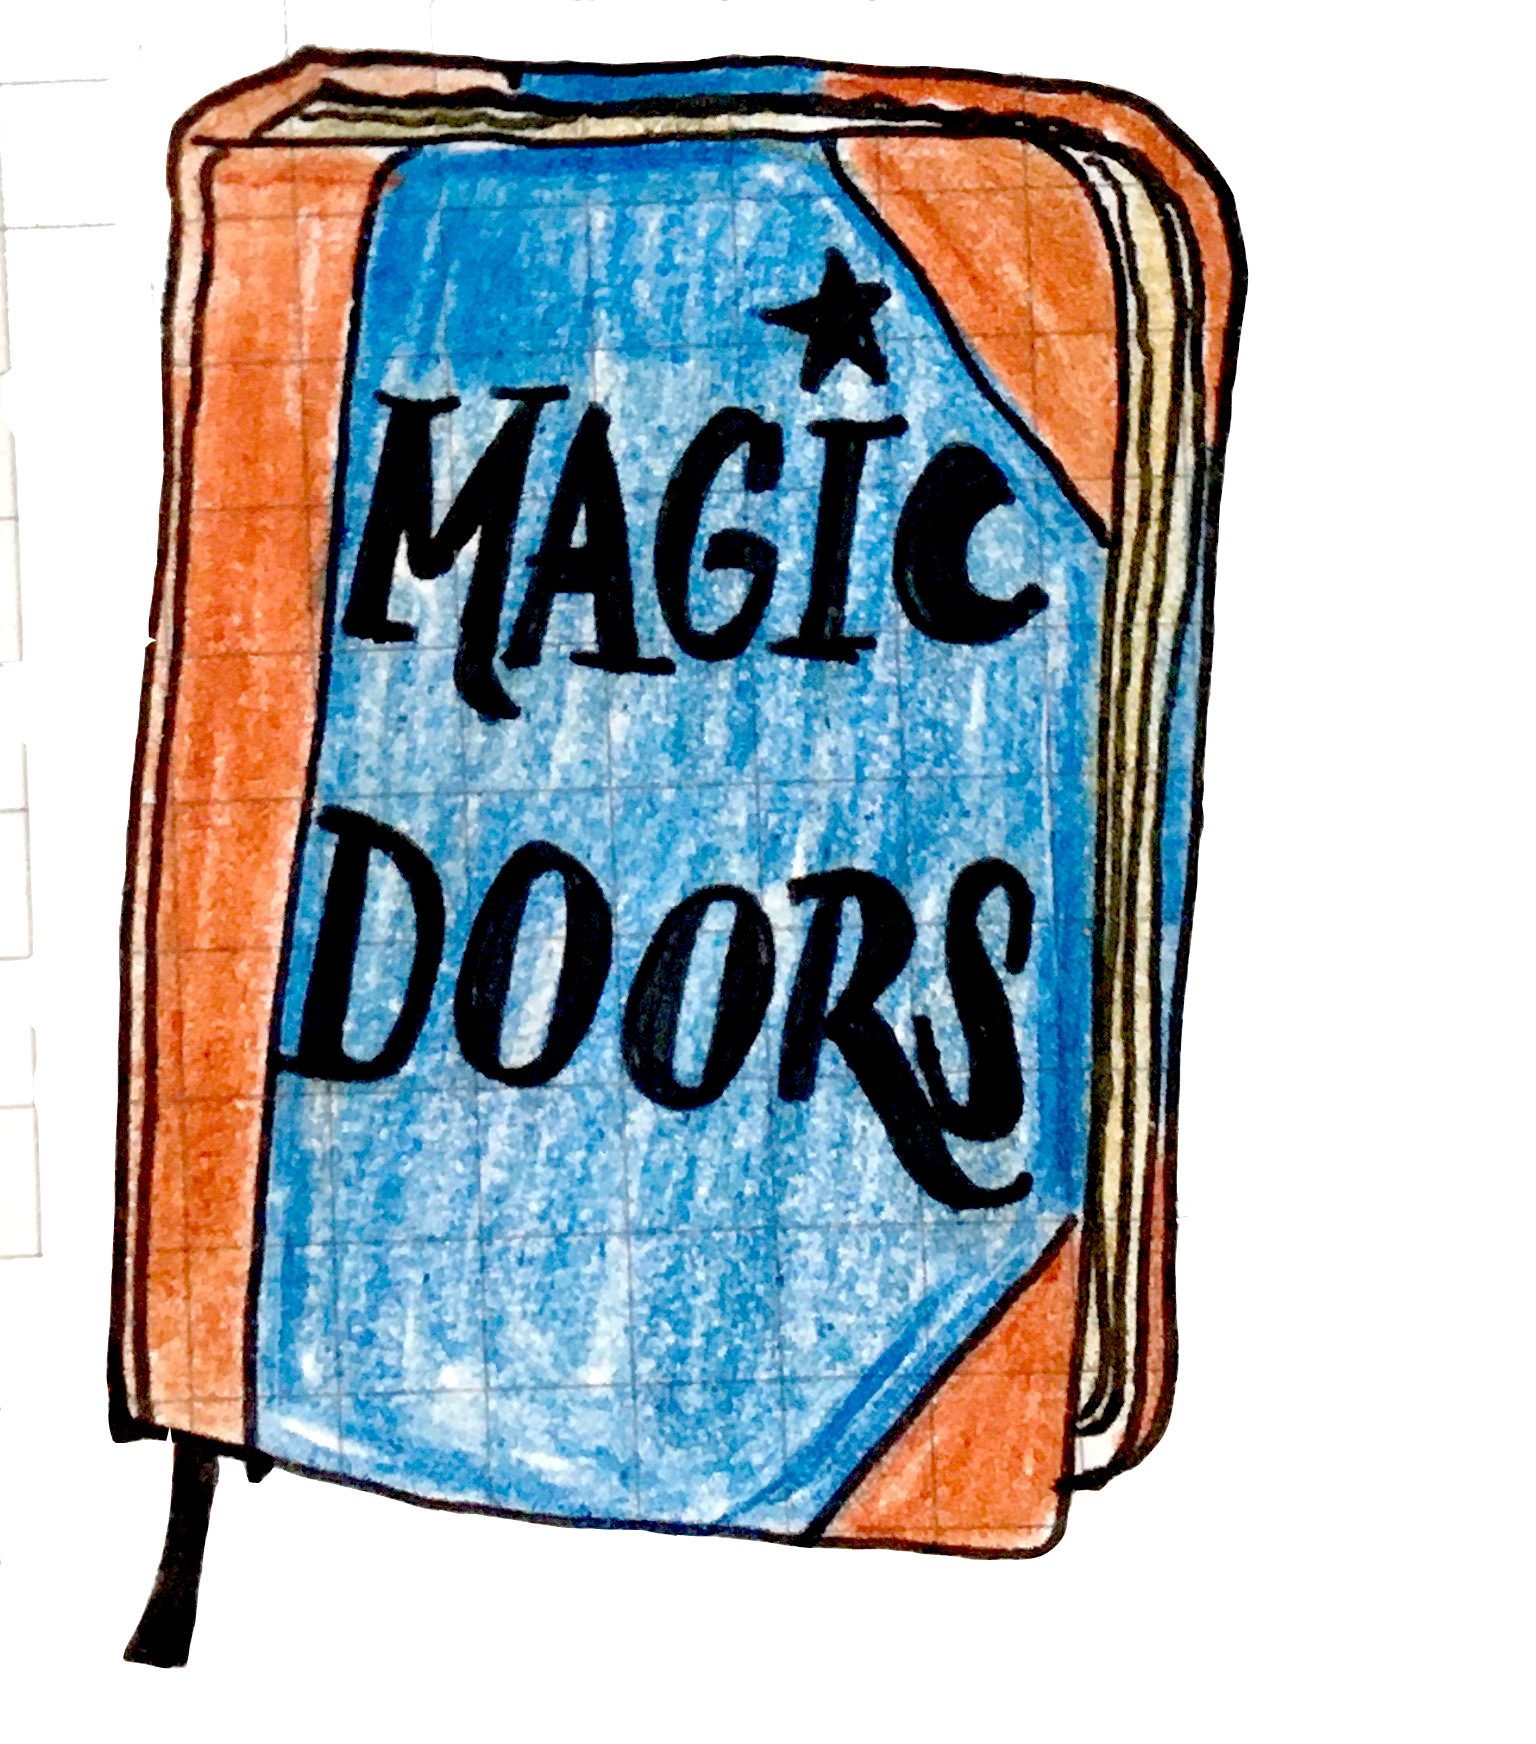 MAGIC
DOORS